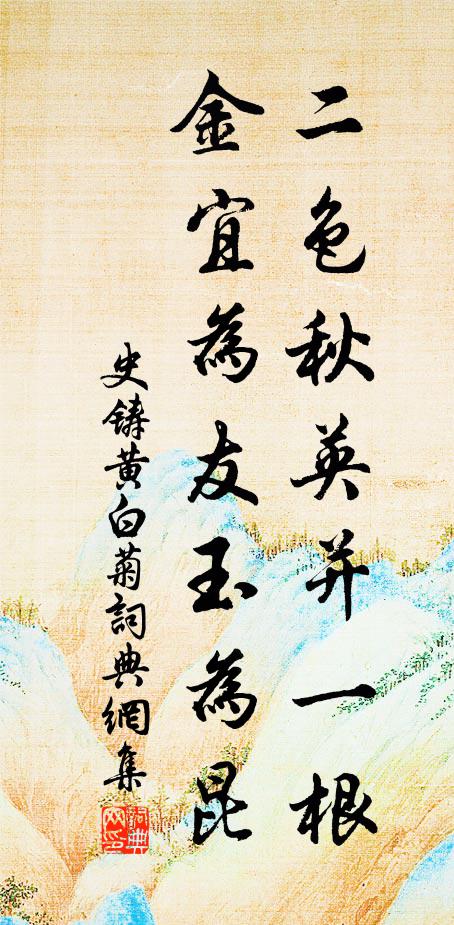 二色秋英并一根
金宜為友玉為昆
史鑄黄白菊詞典網集
詞典網印